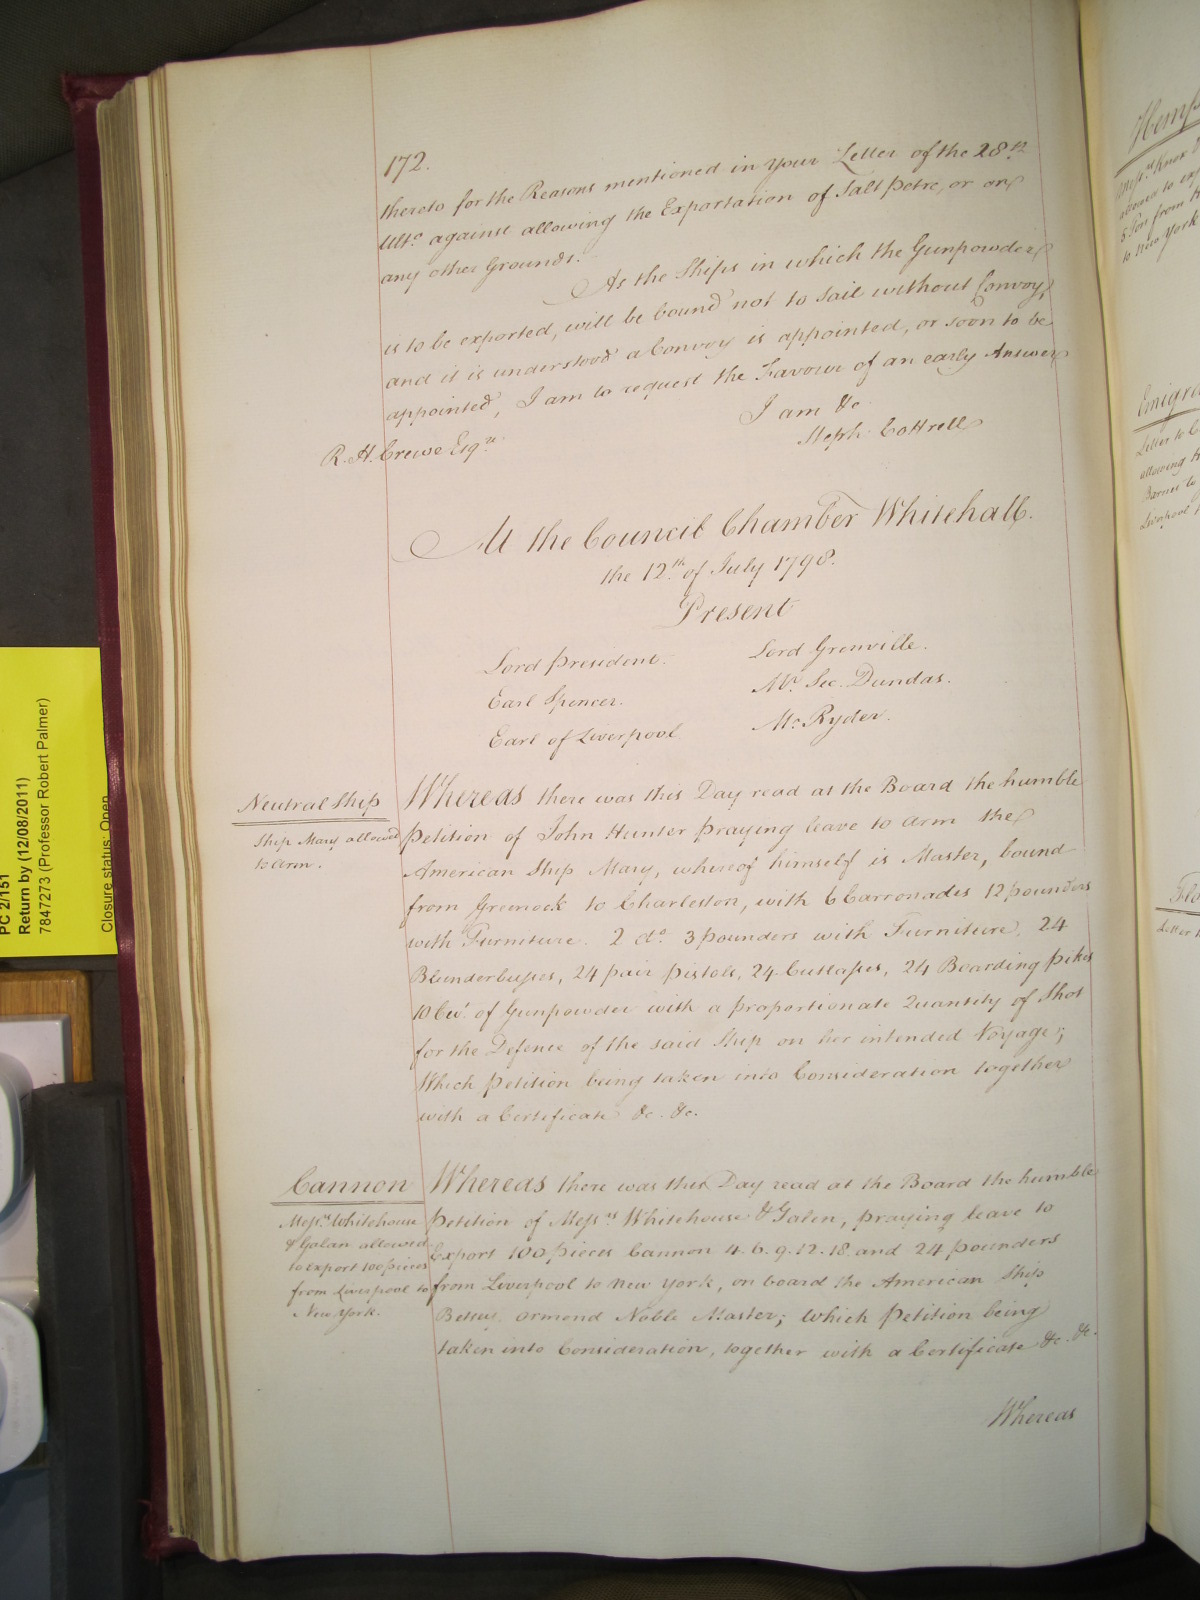 172.
thereto for the Reasons mentioned in your Letter of the 28th
Ulto against allowing the Exportation of Salt Petre, or on
any other Grounds.
As the Ships in which the Gunpowder
is to be exported, will be bound not to Sail without Convoy,
and it is understood a Convoy is appointed, or soon to be
appointed, I am to request the Favour of an early Answer
I am &c
Steph. Cottrell
R. H. Crewe Esqre
At the Council Chamber Whitehall.
the 12th of July 1798.
Present
Lord President.
Lord Grenville.
Earl Spencer.
Mr Sec. Dundas.
Earl of Liverpool
Mr Ryder.
Neutral Ship
Ship Mary allowed
to arm.
Whereas there was this Day read at the Board the humble
Petition of John Hunter praying leave to arm the
American Ship Mary, whereof himself is Master, bound
from Greenock to Charleston, with 6 Carronades 12 pounders
with Furniture. 2 do. 3 pounders with Furniture, 24
Blunderbusses, 24 pair Pistols, 24 Cutlasses, 24 Boarding Pikes
10 Cwt. of Gunpowder with a proportionate Quantity of Shot
for the Defence of the said Ship on her intended Voyage;
Which Petition being taken into Consideration together
with a Certificate &c. &c.
Cannon
Messrs Whitehouse
& Galan allowed
to export 100 pieces
from Liverpool to
New York.
Whereas there was this Day read at the Board the humble
Petition of Messrs Whitehouse & Galen, praying leave to
Export 100 pieces Cannon 4. 6. 9. 12. 18. and 24 pounders
from Liverpool to New York, on board the American Ship
Betsey, Ormond Noble Master; Which Petition being
taken into Consideration, together with a Certificate &c. &c.
Whereas
PC 2/151
Return by (12/08/2011)
7847273 (Professor Robert Palmer)
Closure status: Open
Letter to
allowing
Liverpool
to New York